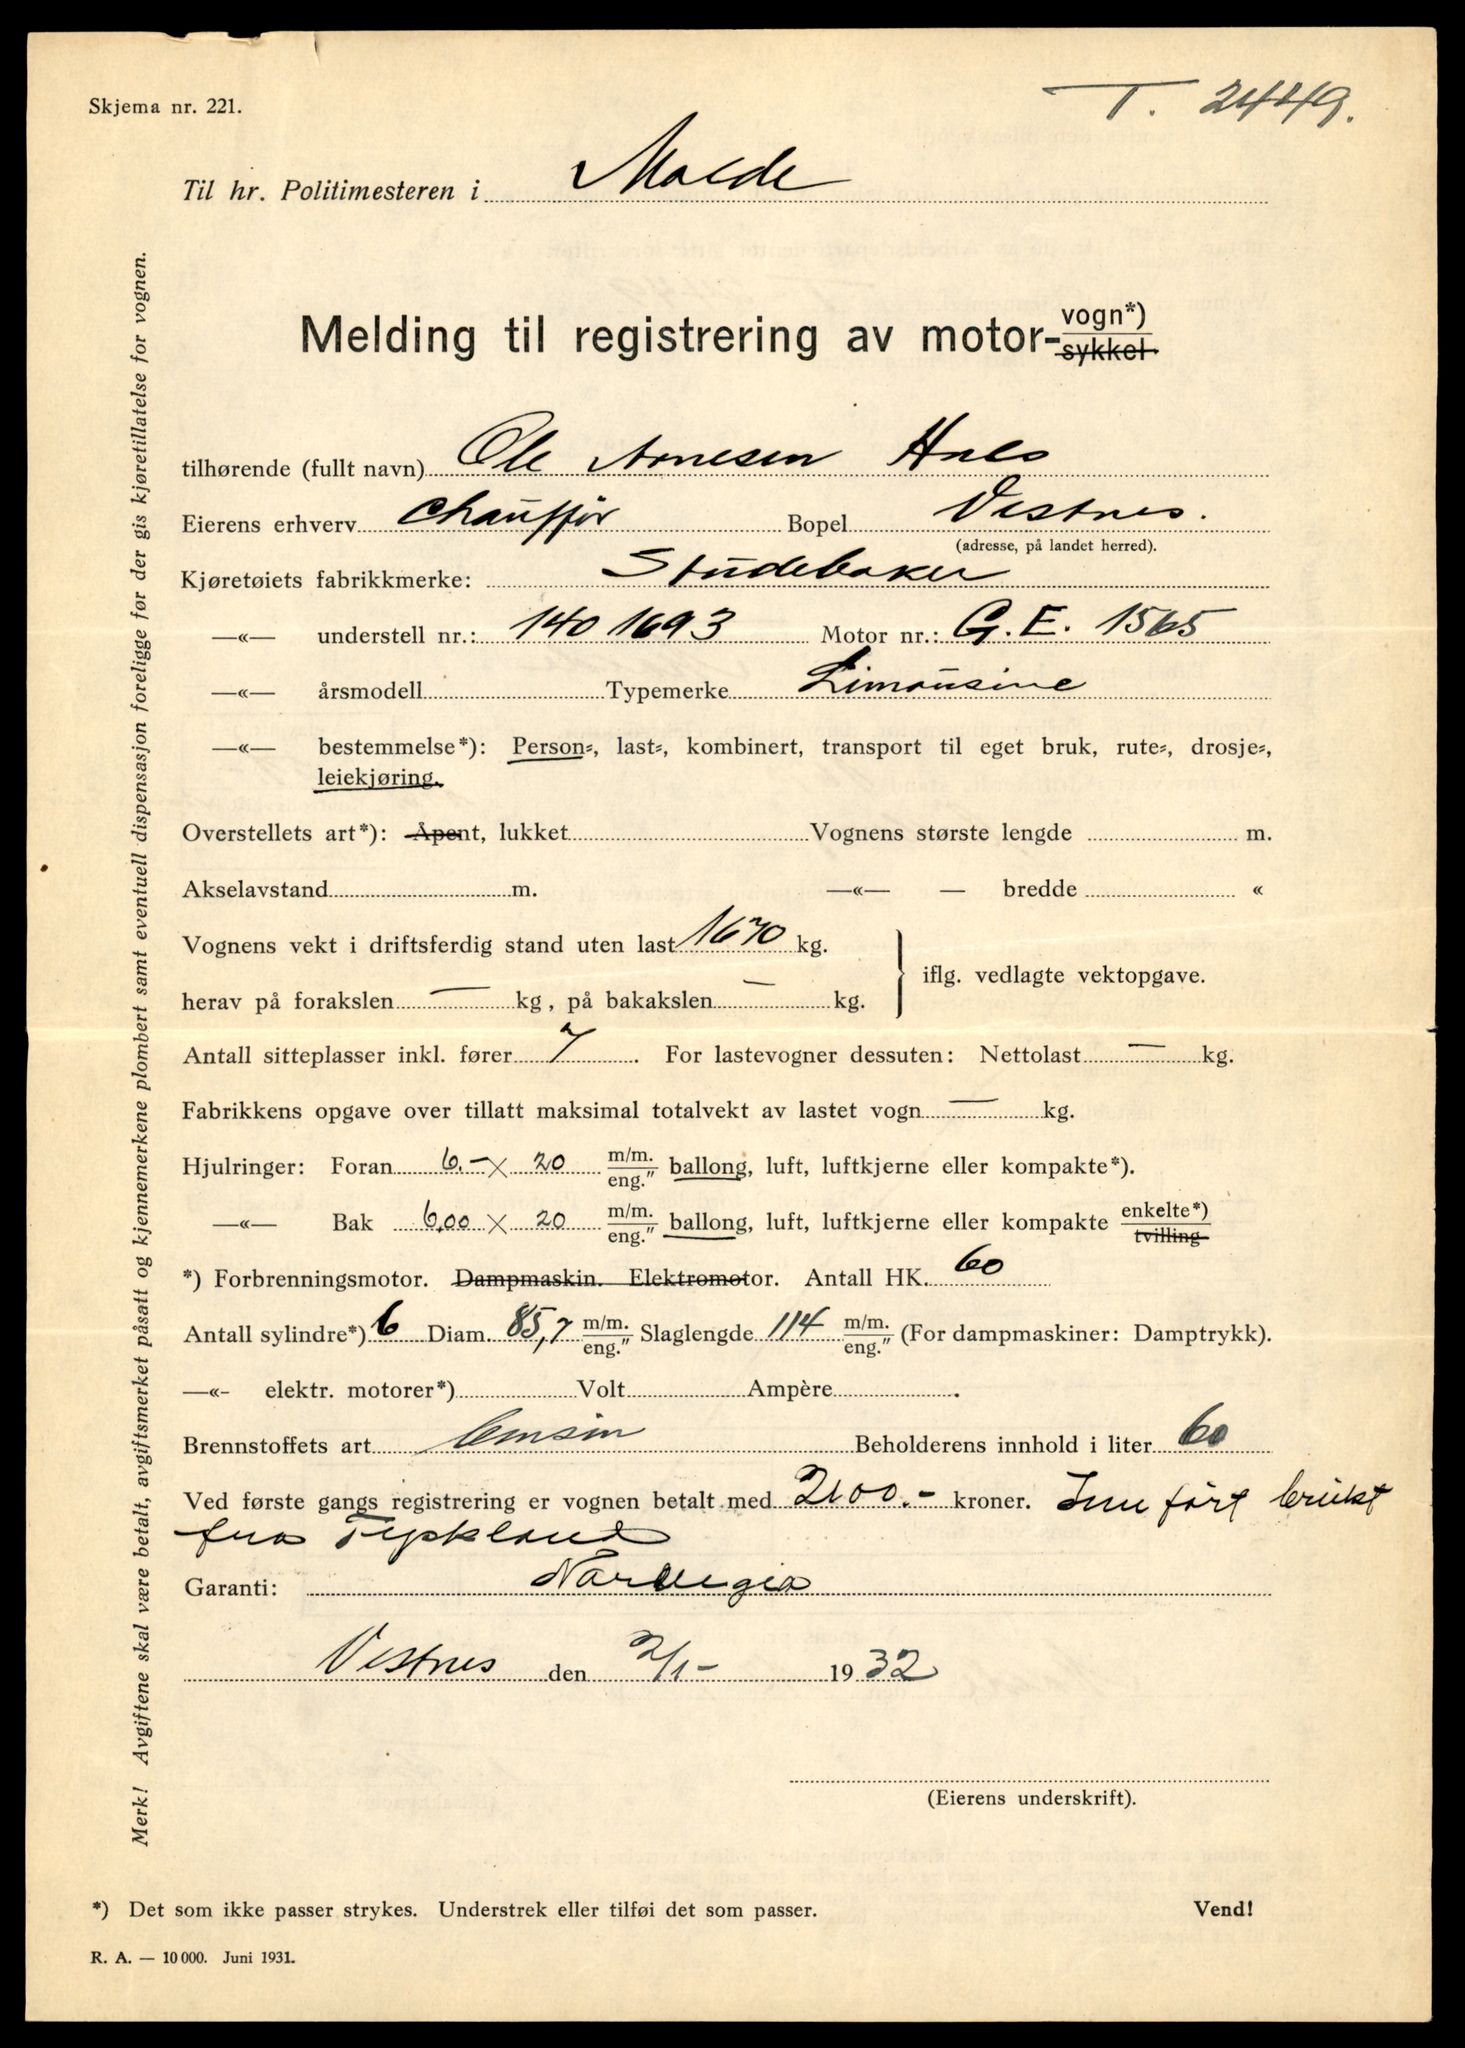 Skjema nr. 221.
T. 2449.
Til hr. Politimesteren i Molde
Melding til registrering av motor-vogn*) sykkel.
tilhørende (fullt navn) Ole Arnesen Hals
Eierens erhverv chauffør Bopel Vestnes.
(adresse, på landet herred).
Kjøretøiets fabrikkmerke: Studebaker
—«— understell nr.: 1401693 Motor nr.: G.E. 1565
—«— årsmodell Typemerke Limousine
—«— bestemmelse*): Person-, last-, kombinert, transport til eget bruk, rute-, drosje-,
leiekjøring.
Overstellets art*): Åpent, lukket Vognens største lengde m.
Akselavstand m. —«— — bredde «
Vognens vekt i driftsferdig stand uten last 1670 kg.
herav på forakslen — kg, på bakakslen — kg.
iflg. vedlagte vektopgave.
Antall sitteplasser inkl. fører 7. For lastevogner dessuten: Nettolast — kg.
Fabrikkens opgave over tillatt maksimal totalvekt av lastet vogn — kg.
Hjulringer: Foran 6.- × 20 m/m. eng." ballong, luft, luftkjerne eller kompakte*).
—«— Bak 6,00 × 20 m/m. eng." ballong, luft, luftkjerne eller kompakte enkelte*) tvilling
*) Forbrenningsmotor. Dampmaskin. Elektromotor. Antall HK. 60
Antall sylindre*) 6 Diam. 85,7 m/m. eng." Slaglengde 114 m/m. eng." (For dampmaskiner: Damptrykk).
—«- elektr. motorer*) Volt Ampère.
Brennstoffets art bensin Beholderens innhold i liter 60
Ved første gangs registrering er vognen betalt med 2100.- kroner. Innført brukt
fra Tyskland
Garanti: Norvegia
Vestnes den 2/1- 1932
(Eierens underskrift).
*) Det som ikke passer strykes. Understrek eller tilføi det som passer. Vend!
R. A. — 10 000. Juni 1931.
Merk! Avgiftene skal være betalt, avgiftsmerket påsatt og kjennemerkene plombert samt eventuell dispensasjon foreligge før der gis kjøretillatelse for vognen.